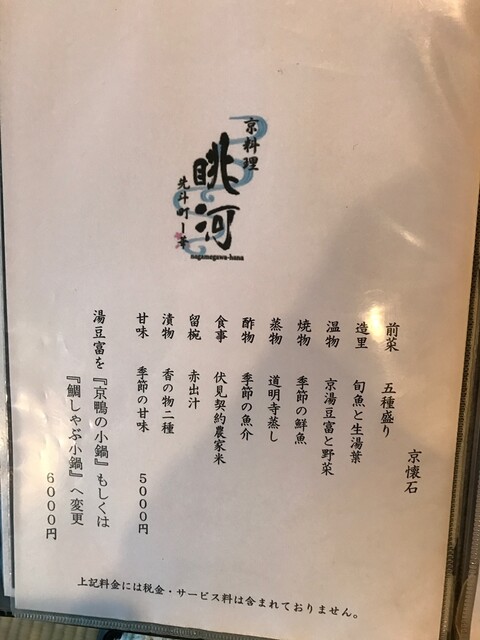 京料理
眺河
先斗町ー華
nagamegawa-hana
京懐石
前菜 五種盛り
造里 旬魚と生湯葉
温物 京湯豆富と野菜
焼物 季節の鮮魚
蒸物 道明寺蒸し
酢物 季節の魚介
食事 伏見契約農家米
留椀 赤出汁
漬物 香の物二種
甘味 季節の甘味 5000円
湯豆富を『京鴨の小鍋』もしくは
『鯛しゃぶ小鍋』へ変更
6000円
上記料金には税金・サービス料は含まれておりません。